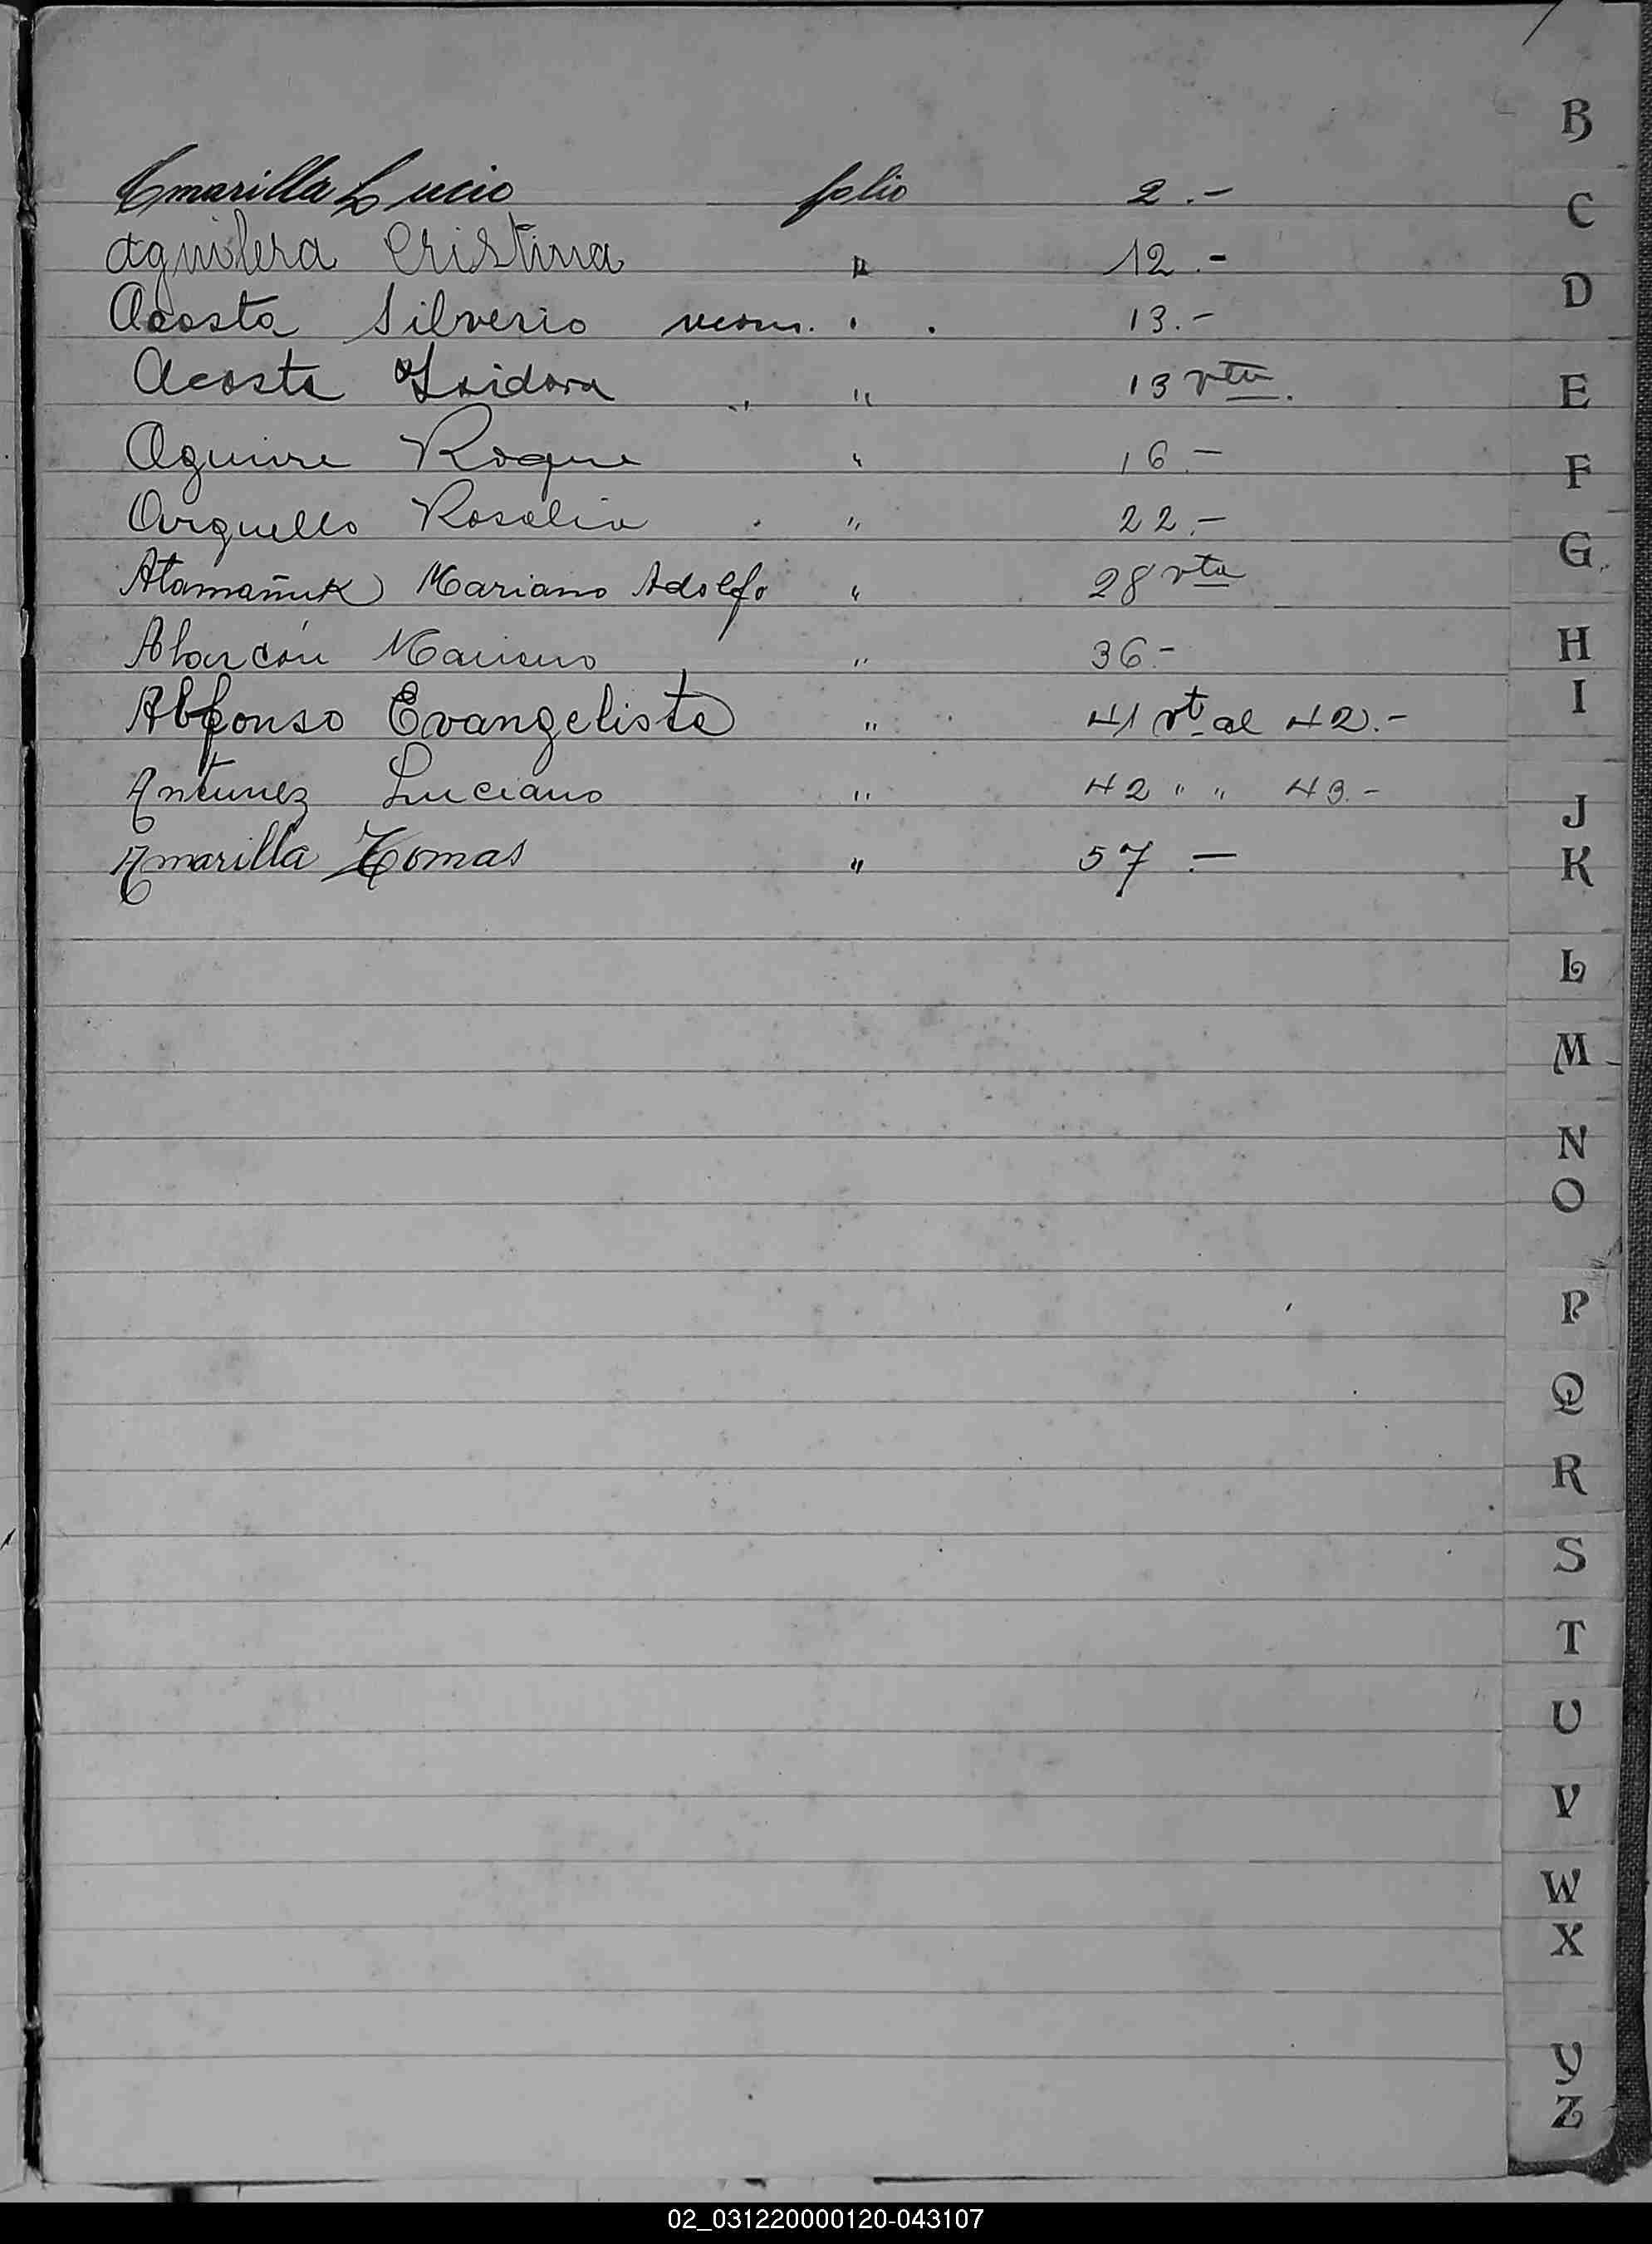 Amarilla Lucio folio 2.-
Aguilera Cristina " 12.-
Acosta Silverio " 13.-
Acosta Isidora " " 13 vta.
Aguirre Roque " 16.-
Arguello Rosalia " 22.-
Atamañuk Mariano Adolfo " 28 vta
Alarcón Mariano " 36.-
Alfonso Evangelista " 41 vt al 42.-
Antunez Luciano " 42 " " 43.-
Amarilla Tomas " 57.-
B
C
D
E
F
G
H
I
J
K
L
M
N
O
P
Q
R
S
T
U
V
W
X
Y
Z
02_031220000120-043107